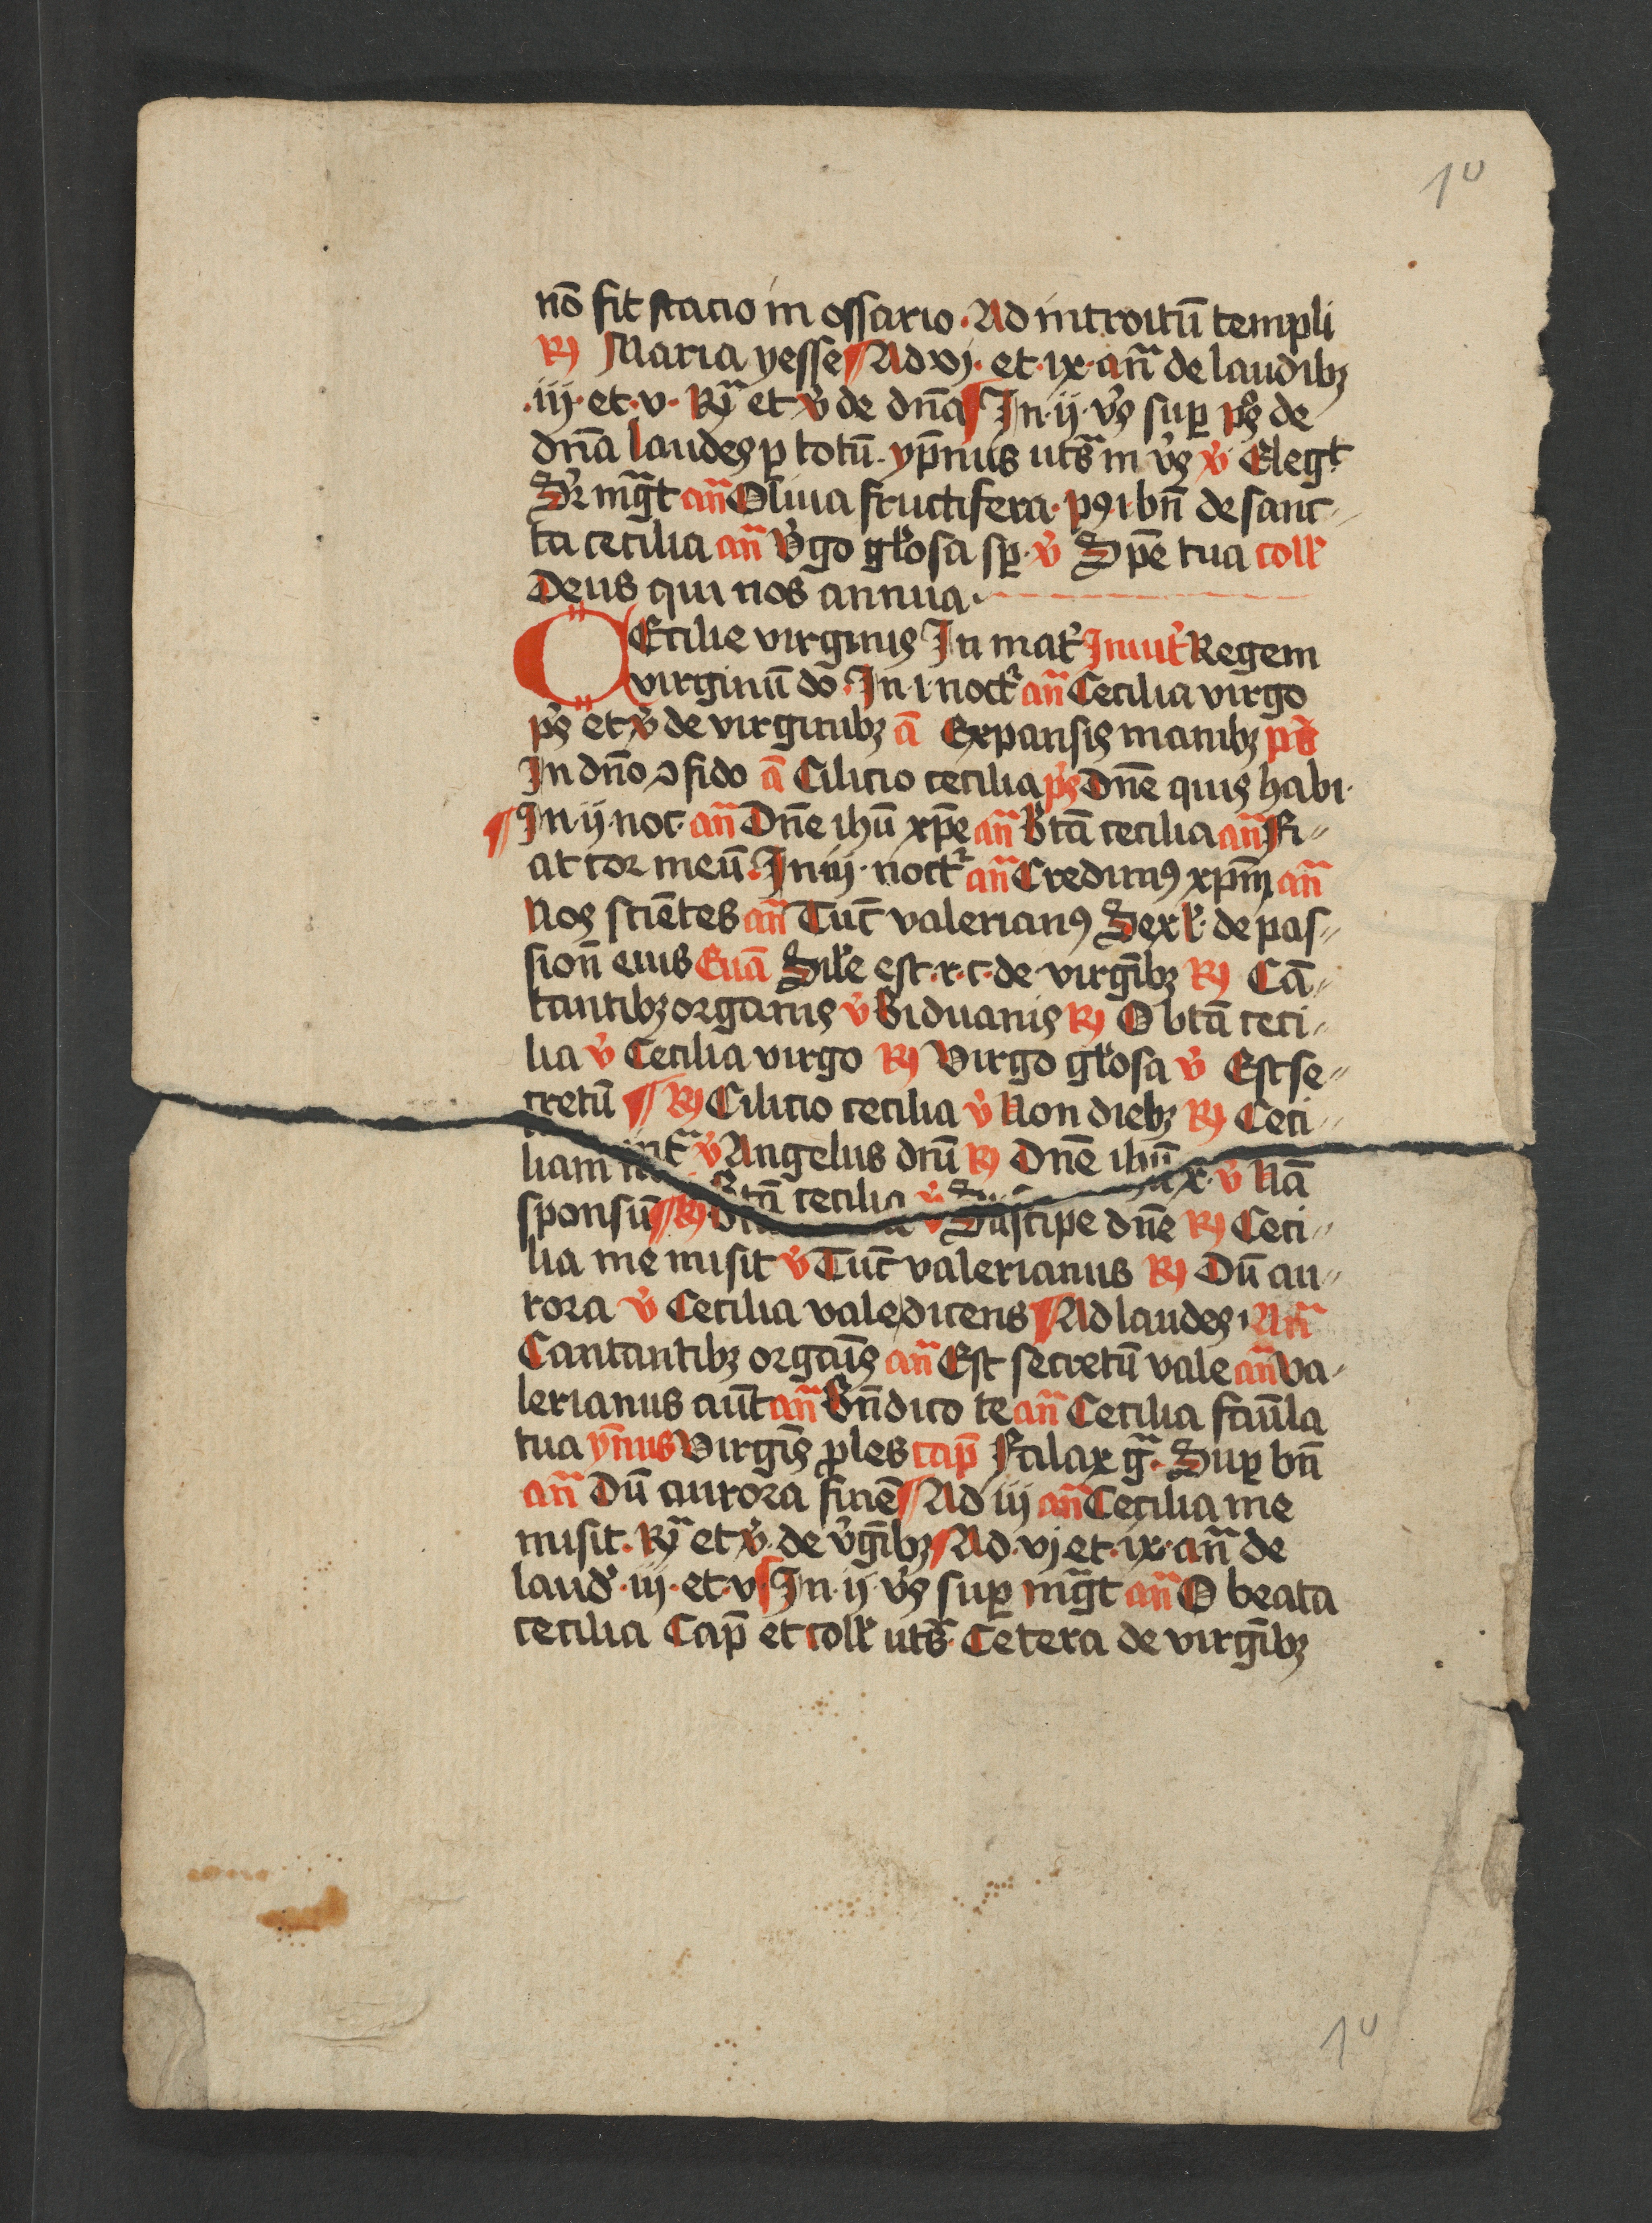 10
nō fit stacio in ossario. Ad introitū templi
℟ Maria yesse ¶ Ad vj. et. ix. an̄ de laudibꝫ
.iij. et. v. ℟ et ℣ de dn̄a ¶ In. ij. vꝭ suꝑ pꝭ de
dn̄a laudes ꝑ totū. ypnus uts̄ in vꝭ ℣ Elegt
Sr mḡt an̄ Oliua fructifera. pꝯ. i. bn̄ de sanc
ta cecilia an̄ Vgo gl'osa sꝑ. ℣ Spē tua coll'
Deus qui nos annua.
CEcilie virginis In mat' Inuit' Regem
virginū do. In. i. noct' an̄ Cecilia virgo
pꝭ et ℣ de virginibꝫ ā Expansis manibꝫ ps
In dn̄o ꝯfido ā Cilicio cecilia pꝭ Dn̄e quis habi.
¶ In. ij. noc. an̄ Dn̄e ihū xp̄e an̄ Btā cecilia an̄ Fi
at cor meū. In iij. noct' an̄ Credimꝯ xpm̄ an̄
Nos sciētes an̄ Tūc valerianꝯ Sex l'. de pas
sion̄ eius Euā Sil'e est. r. c. de virgībꝫ ℟ Cā
tantibꝫ organis ℣ Biduanis ℟ O btā ceci
lia ℣ Cecilia virgo ℟ Virgo gl'osa ℣ Est se
cretū ¶ ℟ Cilicio cecilia ℣ Non diebꝫ ℟ Ceci
liam int̄ ℣ Angelus dnī ℟ Dn̄e ihū x. ℣ Nā
sponsū ¶ ℟ Btā cecilia ℣ Suscipe dn̄e ℟ Ceci
lia me misit ℣ Tūc valerianus ℟ Dū au
rora ℣ Cecilia valedicens ¶ Ad laudes. An̄
Cantantibꝫ orgāis an̄ Est secretū vale an̄ Va
lerianus aūt an̄ Bn̄dico te an̄ Cecilia famla
tua ymnus Virgīs ꝓles cap̄ Falax gr̄a. Suꝑ bn̄
an̄ Dū aurora finē ¶ Ad iij an̄ Cecilia me
misit. ℟ et ℣. de v'gībꝫ ¶ Ad. vj et. ix. an̄ de
laud'. iij. et. v ¶ In. ij. vꝭ suꝑ mḡt an̄ O beata
cecilia Cap̄ et coll' uts̄. Cetera de virgībꝫ
10